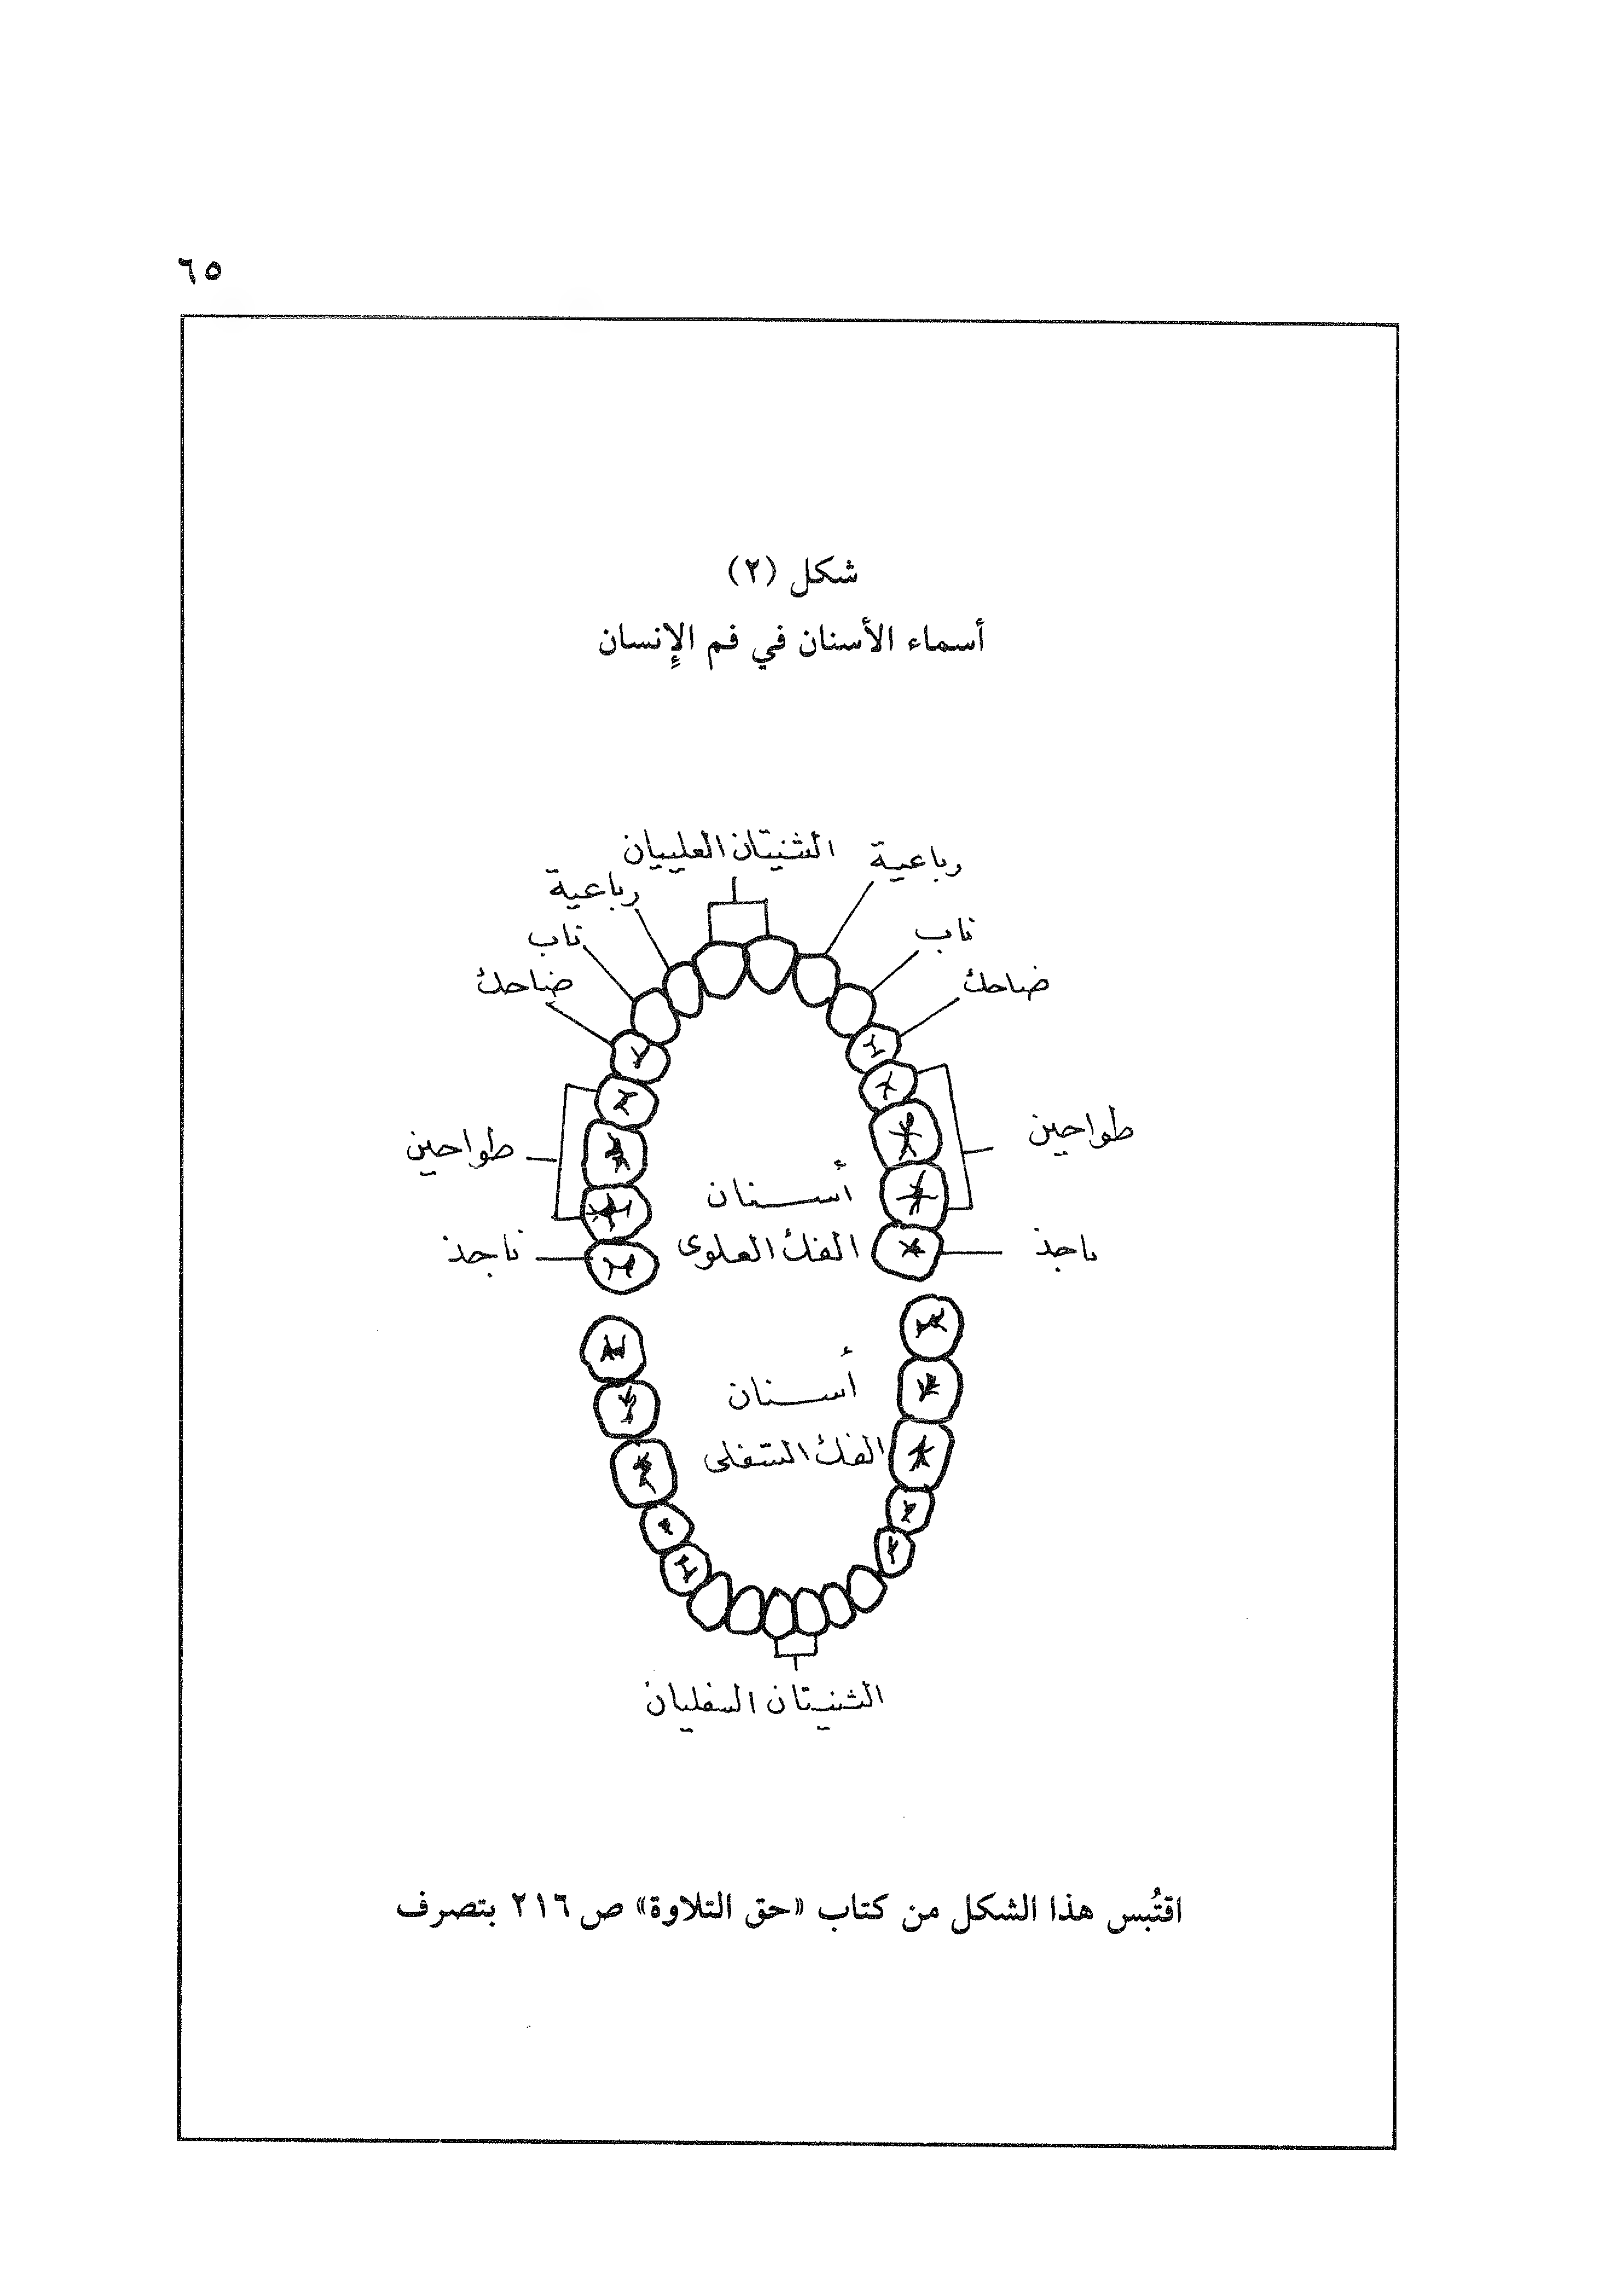 ٦٥
شكل (٢)
أسماء الأسنان في فم الإِنسان
الثنيتان العلييان
رباعية
رباعية
ناب
ناب
ضاحك
ضاحك
طواحين
طواحين
أسنان
الفك العلوى
ناجذ
ناجذ
أسنان
الفك السفلى
الثنيتان السفليان
اقتُبس هذا الشكل من كتاب «حق التلاوة» ص ٢١٦ بتصرف